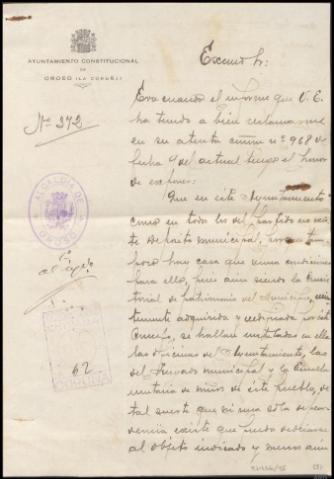 AYUNTAMIENTO CONSTITUCIONAL
DE
OROSO (LA CORUÑA)
Excmo Sr:
Nº 372
Evacuando el informe que V. E.
ha tenido a bien reclamarme
en su atenta nº 968 de
fecha 9 del actual tengo el honor
de exponer:
Que en este Ayuntamiento
como en todo los del partido no exis-
te depósito municipal, tam
poco hay casa que reuna condiciones
para ello, pues aun siendo la Consis
torial de patrimonio del Municipio,
adquirida y reedificada por el
Concejo, se hallan instaladas en ella
las oficinas de Ayuntamiento, las
del Juzgado municipal y la Escuela
unitaria de niños de este pueblo, de
tal suerte que ni una sola depen
dencia existe que pueda dedicarse
al objeto indicado y menos aun
ALCALDIA DE
OROSO
62
CORUÑA